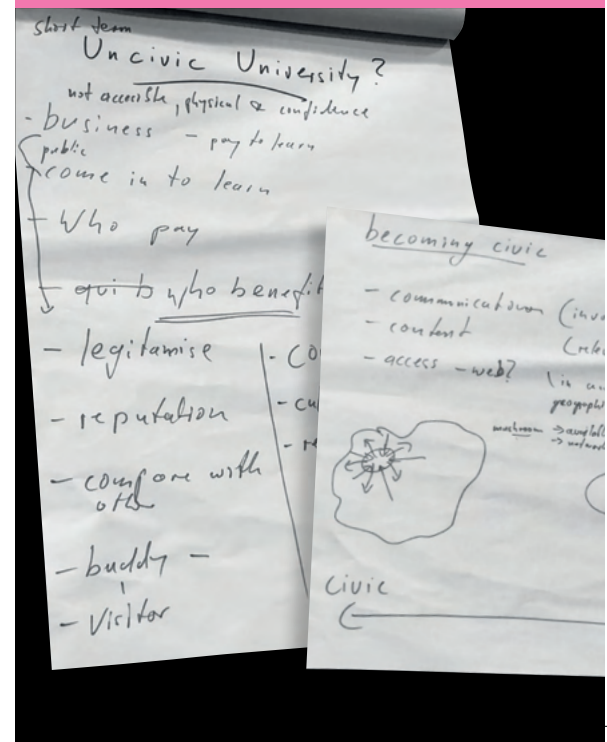 short term
Uncivic University?
not accessible, physical & confidence
- business - pay to learn
public
come in to learn
- Who pay
- who benefit
- legitamise
- reputation
- compare with
other
- buddy -
- Visitor
- co
- cu
- re
becoming civic
- communication (invo
- content (rele
- access - web? (in
geographi
mushroom
Civic